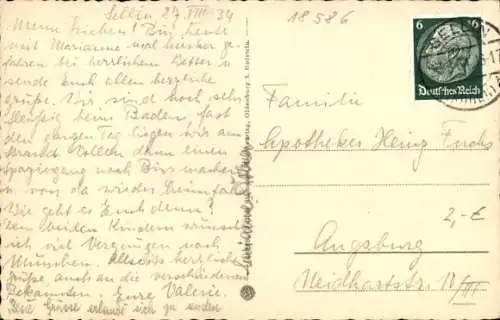 Sellin, 27. VIII 34
Meine Lieben! Bin heute
mit Marianne mal hierher ge-
fahren bei herrlichem Wetter u.
sende Euch allen herzliche
Grüße. Wir sind noch sehr
fleißig beim Baden, fast
den ganzen Tag liegen wir am
Strand. Wollen dann einen
Spaziergang nach Binz machen
u. von da wieder heimfahren.
Wie geht es Euch denn?
Den beiden Kindern wünsche
ich viel Vergnügen nach
München. Allseits herzliche
Grüße, auch an die verschiedenen
Bekannten. Eure Valerie.
Grüsse erlaubt sich zu senden
Marianne
Oldenburg i.
18586
6 6
Deutsches Reich
SELLIN
Familie
Apotheker Heinz Fuchs
2,-€
Augsburg
Neidhartstr. 17/III